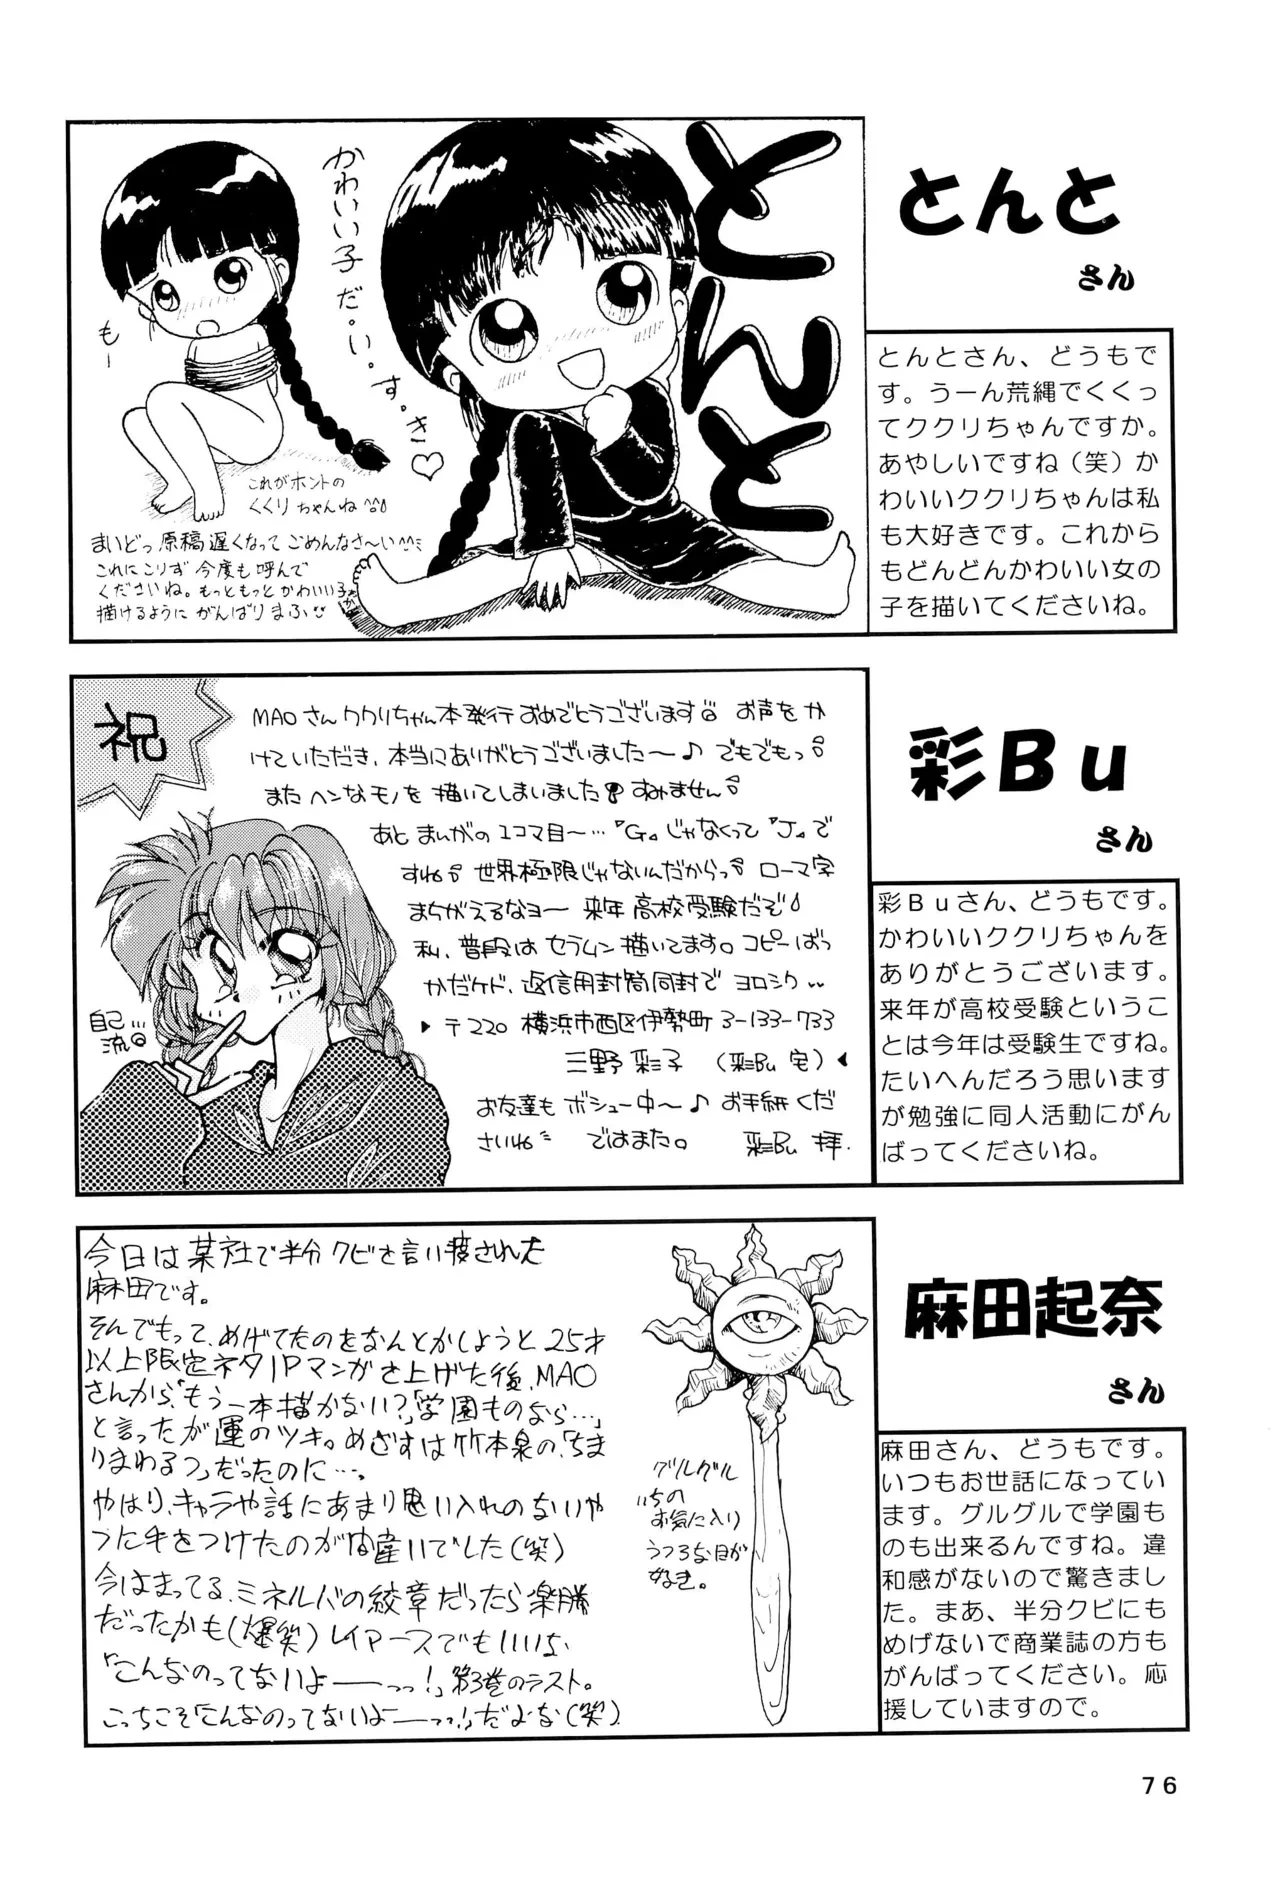 とんと
さん
とんと
かわいい子だ。い。す。き♡
もー
これがホントの
くくりちゃんね
まいどっ原稿遅くなってごめんなさ～い
これにこりず今度も呼んで
くださいね。もっともっとかわいい子が
描けるようにがんばりまふ
とんとさん、どうもで
す。うーん荒縄でくくっ
てククリちゃんですか。
あやしいですね（笑）か
わいいククリちゃんは私
も大好きです。これから
もどんどんかわいい女の
子を描いてくださいね。
彩Ｂｕ
さん
祝
MAOさんククリちゃん本発行おめでとうございます お声をか
けていただき、本当にありがとうございました～♪ でもでもっ
またヘンなモノを描いてしまいました すみません
あとまんがの1コマ目～…『G』じゃなくって『J』で
すね 世界極限じゃないんだからっ ローマ字
まちがえるなヨー 来年高校受験だぞ
私、普段はセラムン描いてます。コピーばっ
かだケド、返信用封筒同封でヨロシク
自己…
流
お友達もボシュー中～♪ お手紙くだ
さいね ではまた。 彩Bu 拝.
彩Ｂｕさん、どうもです。
かわいいククリちゃんを
ありがとうございます。
来年が高校受験というこ
とは今年は受験生ですね。
たいへんだろう思います
が勉強に同人活動にがん
ばってくださいね。
麻田起奈
さん
今日は某社で半分クビを言い渡された
麻田です。
そんでもって、めげてたのをなんとかしようと25才
以上限定ネタ1Pマンガを上げた後、MAO
さんから、「もう一本描かない?」「学園ものなら…」
と言ったが運のツキ。めざすは竹本泉の、「ちま
りまわるつ」だったのに…。
やはり、キャラや話にあまり思い入れのないや
つに手をつけたのが間違いでした(笑)
今はまってる、ミネルバの紋章だったら楽勝
だったかも(爆笑)レイアースでもいいな
「こんなのってないよ――っっ!」第3巻のラスト。
こっちこそ「こんなのってないよ――っっ!」だよな(笑)
グルグル
いちの
お気に入り
うつろな目が
好き。
麻田さん、どうもです。
いつもお世話になってい
ます。グルグルで学園も
のも出来るんですね。違
和感がないので驚きまし
た。まあ、半分クビにも
めげないで商業誌の方も
がんばってください。応
援していますので。
76